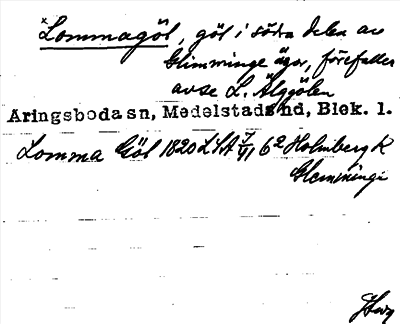 *Lommagöl, göl i södra delen av
Glimminge ägor, förefaller
avse L. Älggölen
Åringsboda sn, Medelstads hd, Blek. l.
Lomma Göl 1820 LSA 7/VI 62 Holmberg K
Glemminge